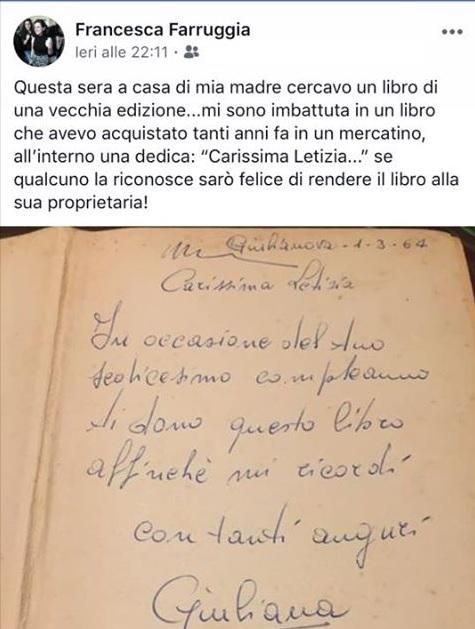 Francesca Farruggia
Ieri alle 22:11 ·
Questa sera a casa di mia madre cercavo un libro di
una vecchia edizione...mi sono imbattuta in un libro
che avevo acquistato tanti anni fa in un mercatino,
all'interno una dedica: “Carissima Letizia...” se
qualcuno la riconosce sarò felice di rendere il libro alla
sua proprietaria!
Giulianova - 1 - 3 - 64
Carissima Letizia
In occasione del tuo
sedicesimo compleanno
ti dono questo libro
affinchè mi ricordi
con tanti auguri
Giuliana